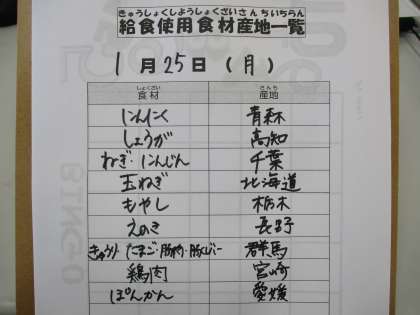 きゅうしょくしようしょくざいさんちいちらん
給食使用食材産地一覧
1月25日(月)
しょくざい さんち
食材 産地
にんにく 青森
しょうが 高知
ねぎ・にんじん 千葉
玉ねぎ 北海道
もやし 栃木
えのき 長野
きゅうり・たまご・豚肉・豚レバー 群馬
鶏肉 宮崎
ぽんかん 愛媛
BINGO